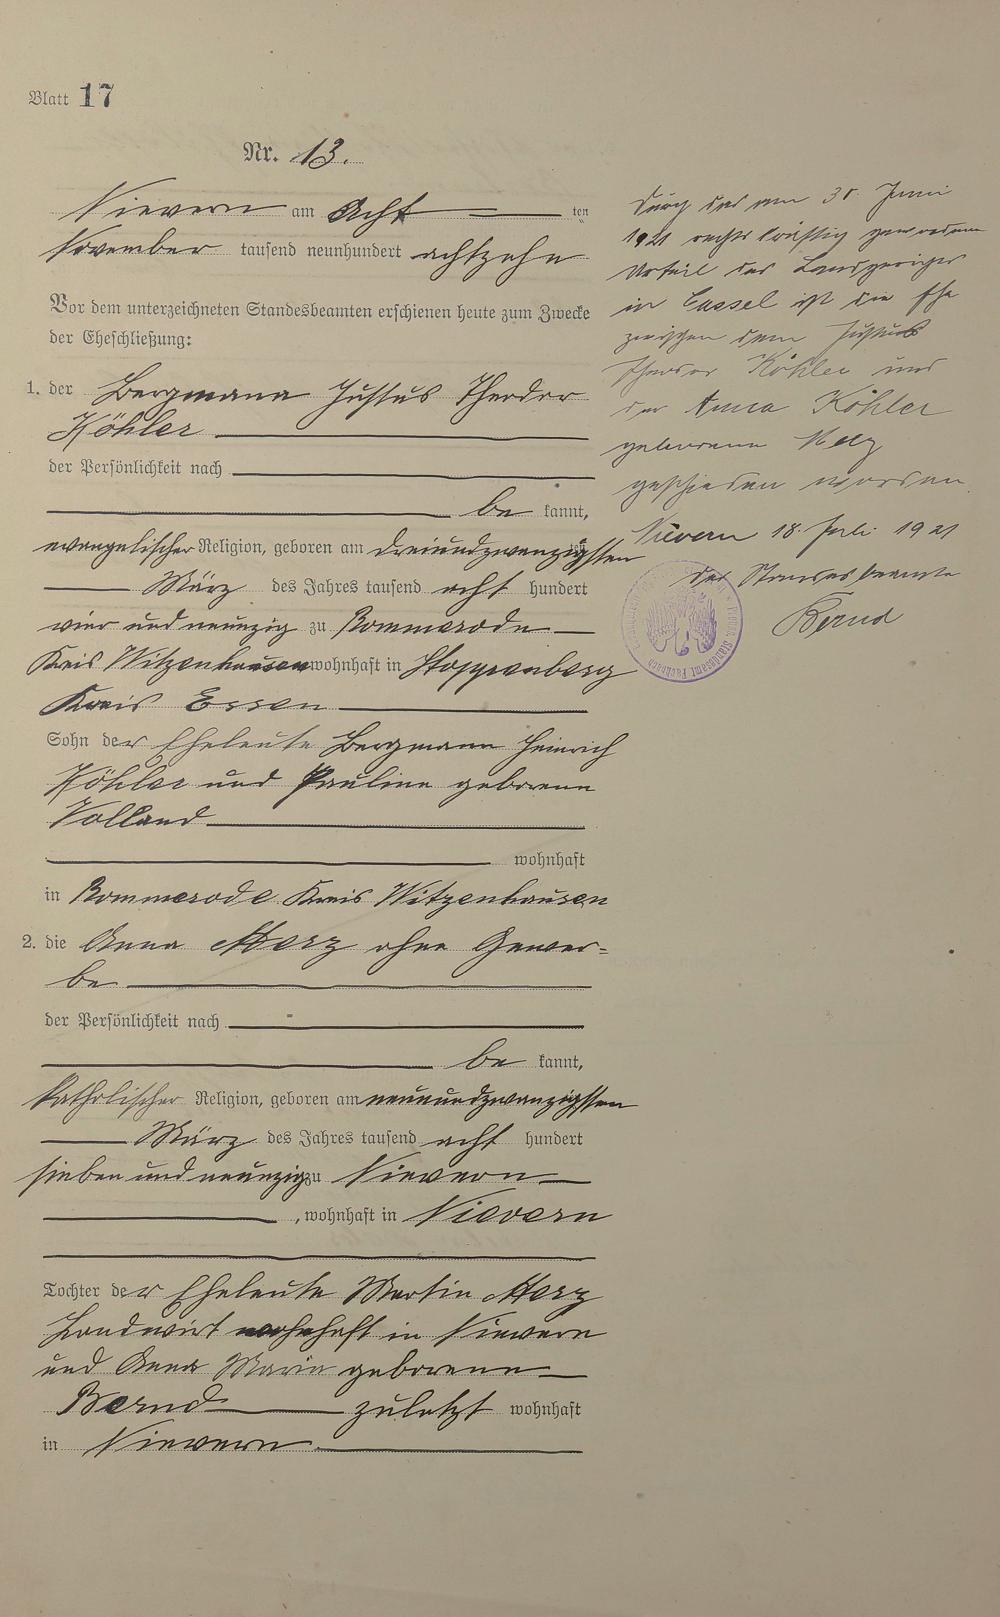 Blatt 17
Nr. 13.
Nievern am Acht ten
November tausend neunhundert achtzehn
Vor dem unterzeichneten Standesbeamten erschienen heute zum Zwecke
der Eheschließung:
1. der Bergmann Justus Theodor
Köhler
der Persönlichkeit nach
be kannt,
evangelischer Religion, geboren am dreiundzwanzigsten
März des Jahres tausend acht hundert
vier und neunzig zu Rommerode
Kreis Witzenhausen wohnhaft in Stoppenberg
Kreis Essen
Sohn der Eheleute Bergmann Heinrich
Köhler und Pauline geborene
Volland
wohnhaft
in Rommerode Kreis Witzenhausen
2. die Anna Morz ohne Gewer-
be
der Persönlichkeit nach
be kannt,
katholischer Religion, geboren am neunundzwanzigsten
März des Jahres tausend acht hundert
sieben und neunzig zu Nievern
, wohnhaft in Nievern
Tochter der Eheleute Martin Morz
Landwirt wohnhaft in Nievern
und Anna Maria geborene
Bernd zuletzt wohnhaft
in Nievern
Durch das am 30 Juni
1921 rechtskräftig gewordene
Urteil des Landgerichts
in Cassel ist die Ehe
zwischen dem Justus
Theodor Köhler und
der Anna Köhler
geborene
geschieden worden.
Nievern 18. Juli 1921
Der Standesbeamte
Bernd